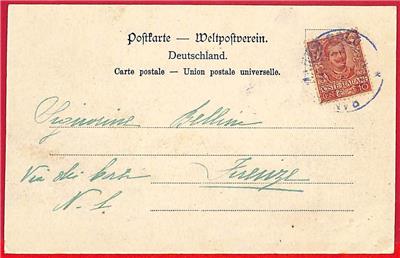 Postkarte — Weltpostverein.
Deutschland.
Carte postale — Union postale universelle.
POSTE ITALIANE
10
Signorine Bellini
Via dei
Firenze
N. 1